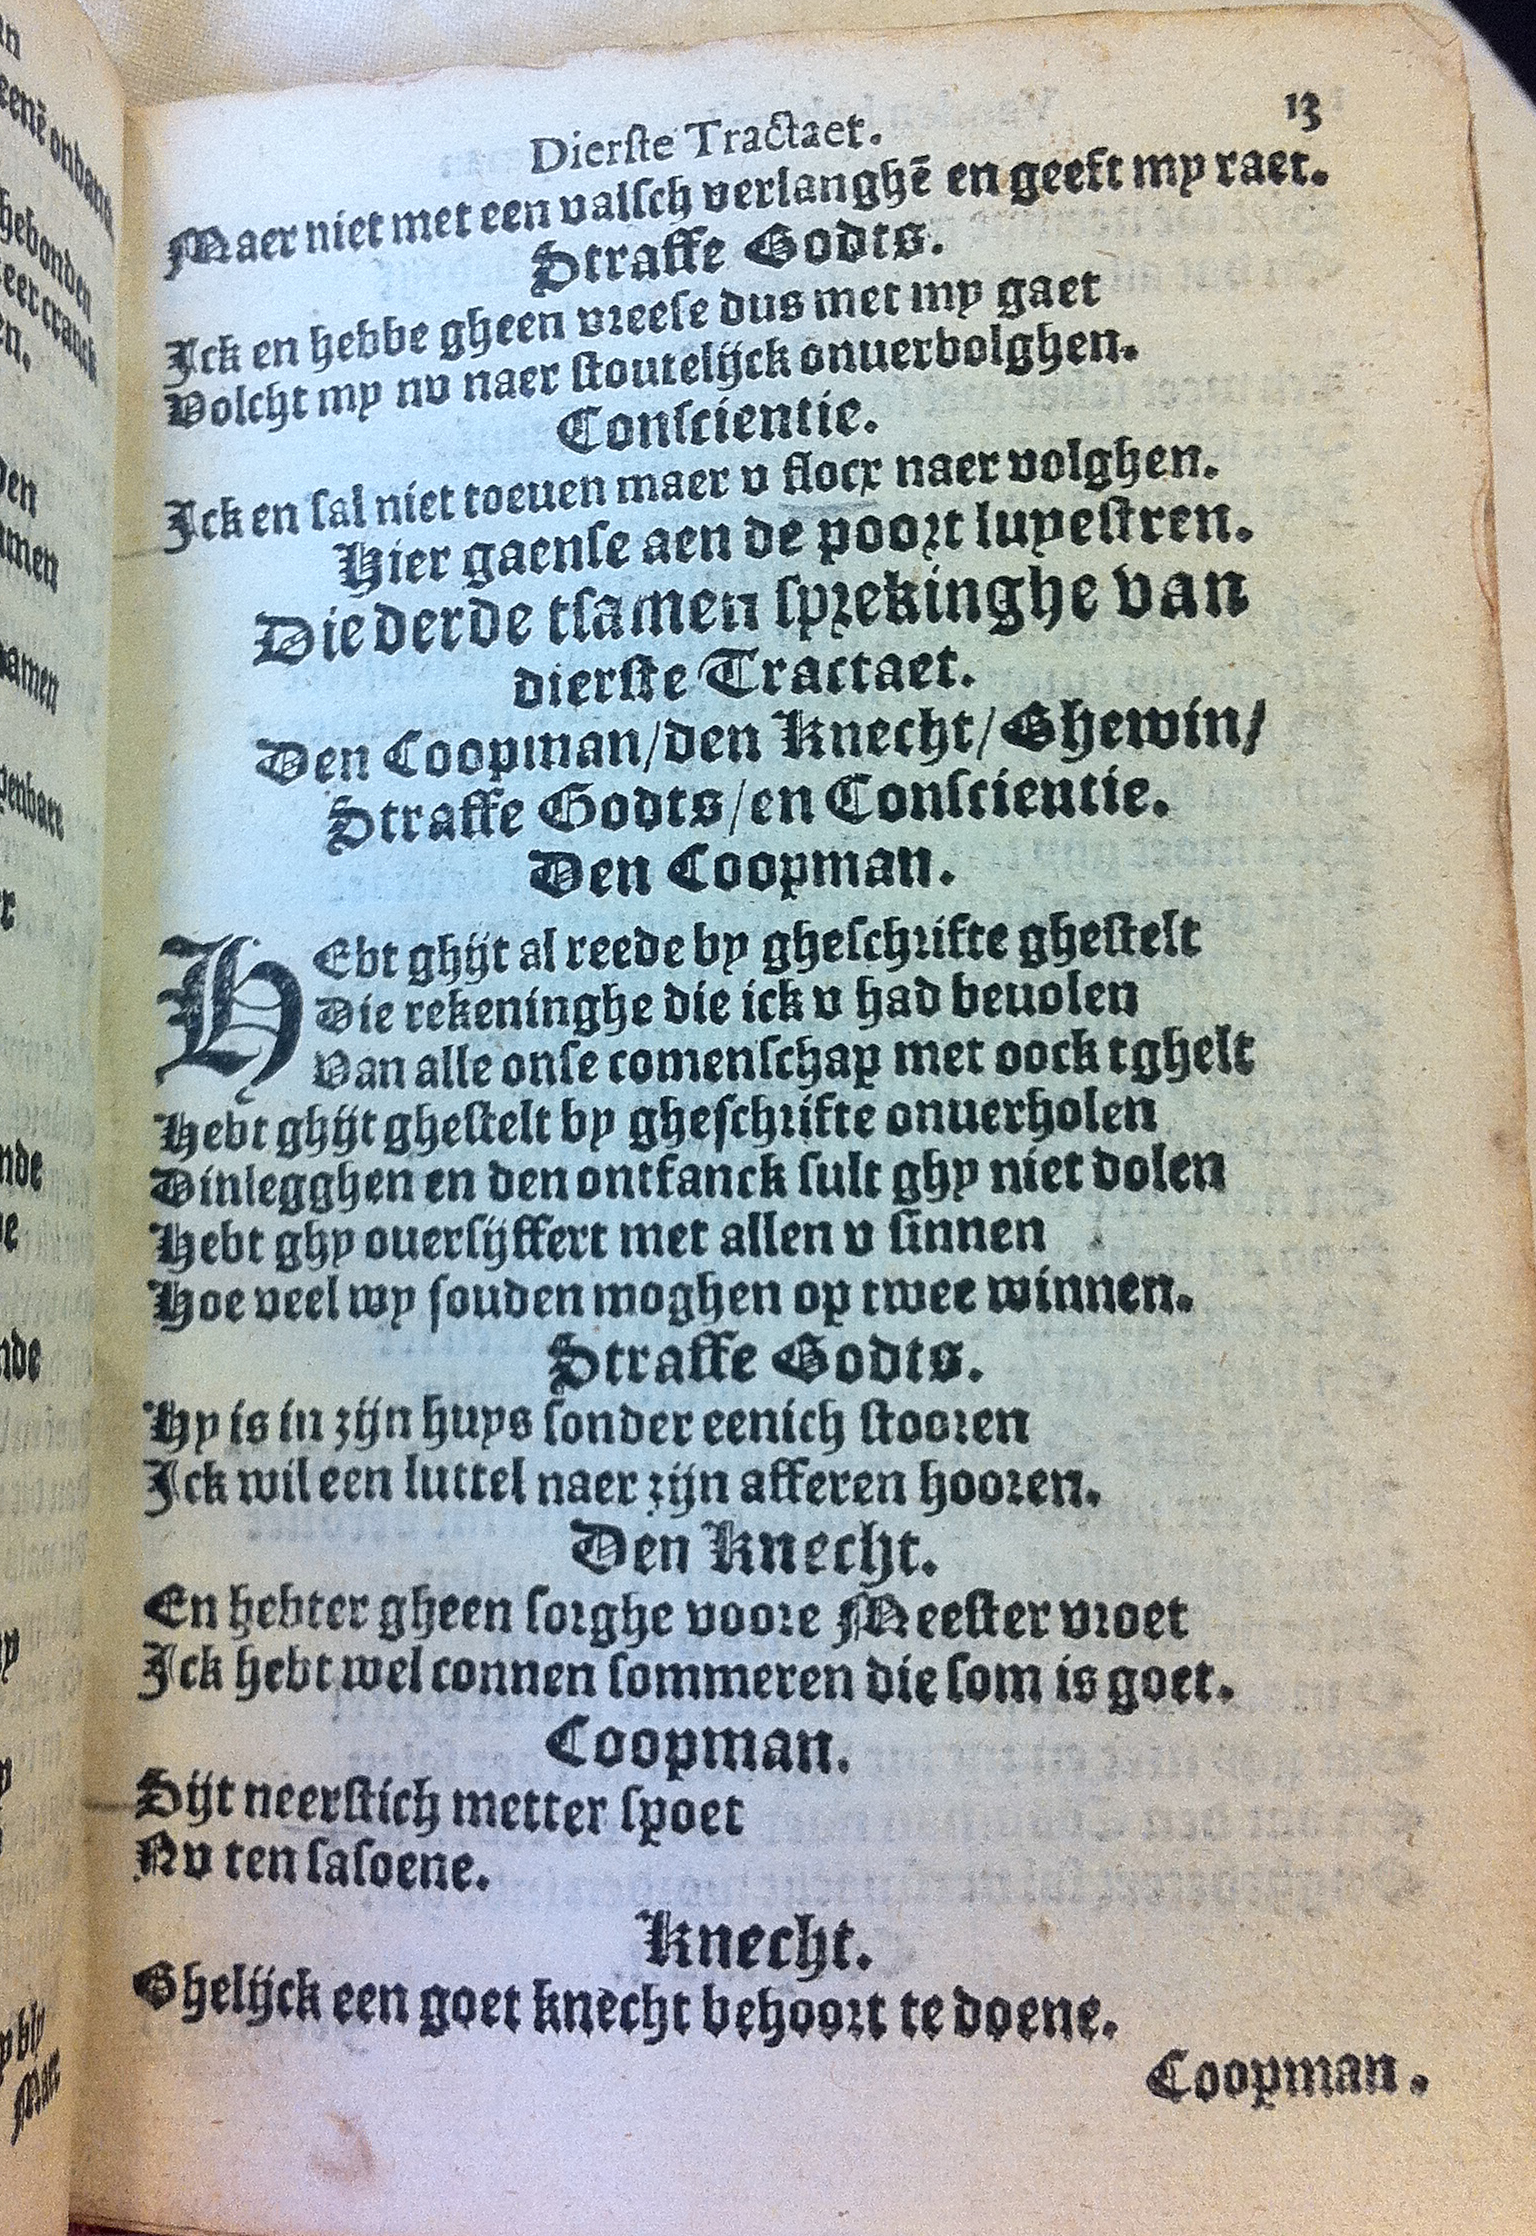 Dierste Tractaet. 13
Maer niet met een valsch verlanghē en geeft my raet.
Straffe Godts.
Ick en hebbe gheen vreese dus met my gaet
Volcht my nv naer stoutelijck onuerbolghen.
Conscientie.
Ick en sal niet toeuen maer v flocx naer volghen.
Hier gaense aen de poort luyestren.
Die derde tsamen sprekinghe van
dierste Tractaet.
Den Coopman/den Knecht/Ghewin/
Straffe Godts/en Conscientie.
Den Coopman.
HEbt ghijt al reede by gheschrifte ghestelt
Die rekeninghe die ick v had beuolen
Van alle onse comenschap met oock tghelt
Hebt ghijt ghestelt by gheschrifte onuerholen
Dinlegghen en den ontfanck sult ghy niet dolen
Hebt ghy ouersijffert met allen v sinnen
Hoe veel wy souden moghen op twee winnen.
Straffe Godts.
Hy is in zijn huys sonder eenich stooren
Ick wil een luttel naer zijn afferen hooren.
Den Knecht.
En hebter gheen sorghe voore Meester vroet
Ick hebt wel connen sommeren die som is goet.
Coopman.
Sijt neerstich metter spoet
Nv ten sasoene.
Knecht.
Ghelijck een goet knecht behoort te doene.
Coopman.